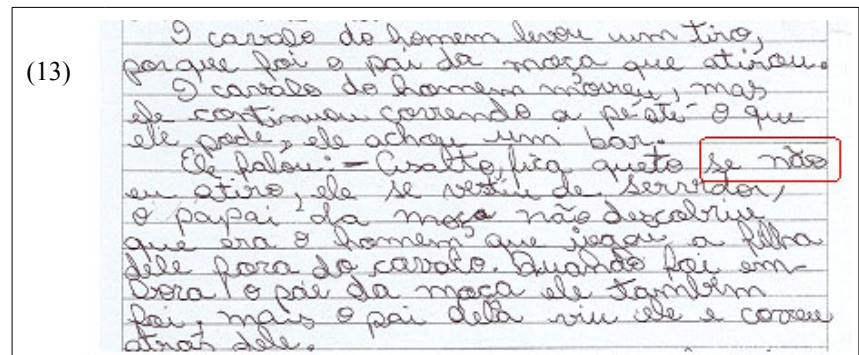 (13)
O cavalo do homem levou um tiro,
porque foi o pai da moça que atirou.
O cavalo do homem morreu, mas
ele continuou correndo a pé até o que
ele pode, ele achou um bar.
Ele falou: – Assalto, fica queto se não
eu atiro, ele se vestiu de serrvidor,
o papai da moça não descobriu
que era o homem que jogou a filha
dele para do cavalo. Quando foi em-
bora o pai da moça ele também
foi, mais o pai dela viu ele e correu
atrás dele.